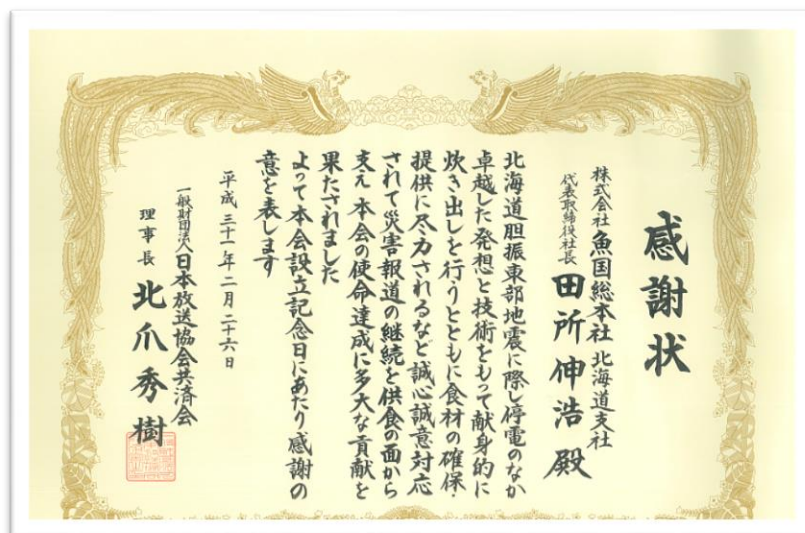 感謝状
株式会社 魚国総本社 北海道支社
代表取締役社長 田所伸浩 殿
北海道胆振東部地震に際し停電のなか
卓越した発想と技術をもって献身的に
炊き出しを行うとともに食材の確保・
提供に尽力されるなど誠心誠意対応
されて災害報道の継続を供食の面から
支え 本会の使命達成に多大な貢献を
果たされました
よって本会設立記念日にあたり感謝の
意を表します
平成三十一年二月二十六日
一般財団法人日本放送協会共済会
理事長 北爪秀樹